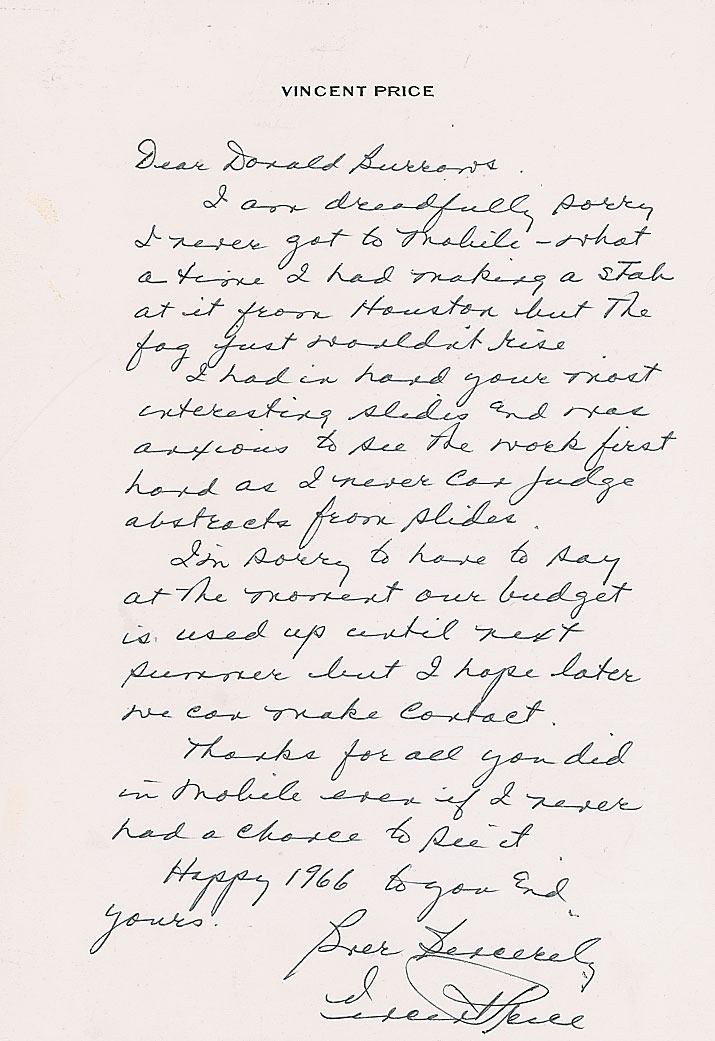 VINCENT PRICE
Dear Donald Burrows.
I am dreadfully sorry
I never got to Mobile - what
a time I had making a stab
at it from Houston but the
fog just wouldn't rise
I had in hand your most
interesting slides and was
anxious to see the work first
hand as I never can judge
abstracts from slides.
I'm sorry to have to say
at the moment our budget
is used up until next
summer but I hope later
we can make contact.
Thanks for all you did
in Mobile even if I never
had a chance to see it
Happy 1966 to you and
yours.
Ever Sincerely
Vincent Price